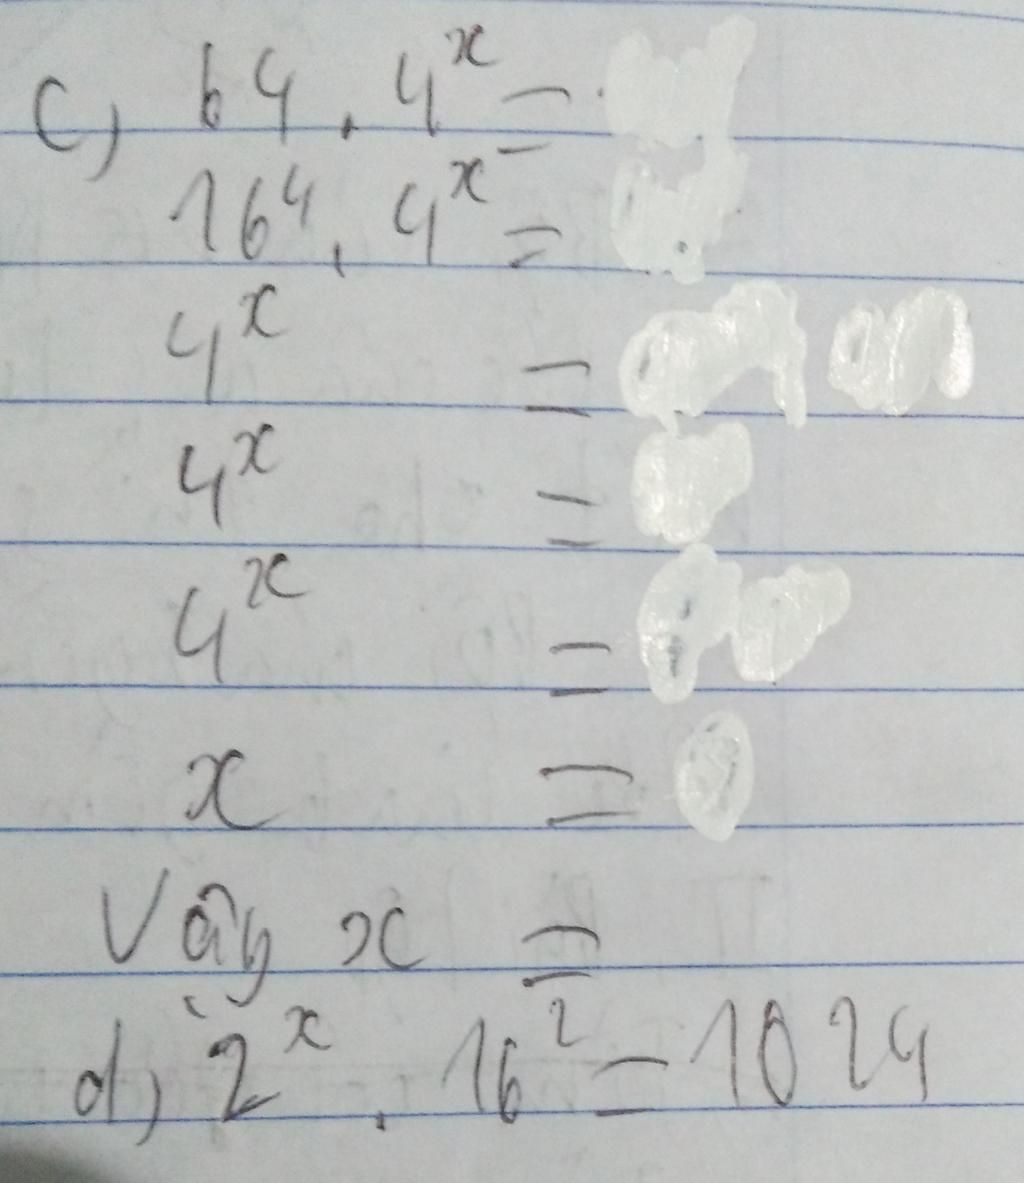 c) 64 . 4ˣ =
16⁴ . 4ˣ =
4ˣ =
4ˣ =
4ˣ =
x =
Vậy x =
d) 2ˣ . 16² = 1024